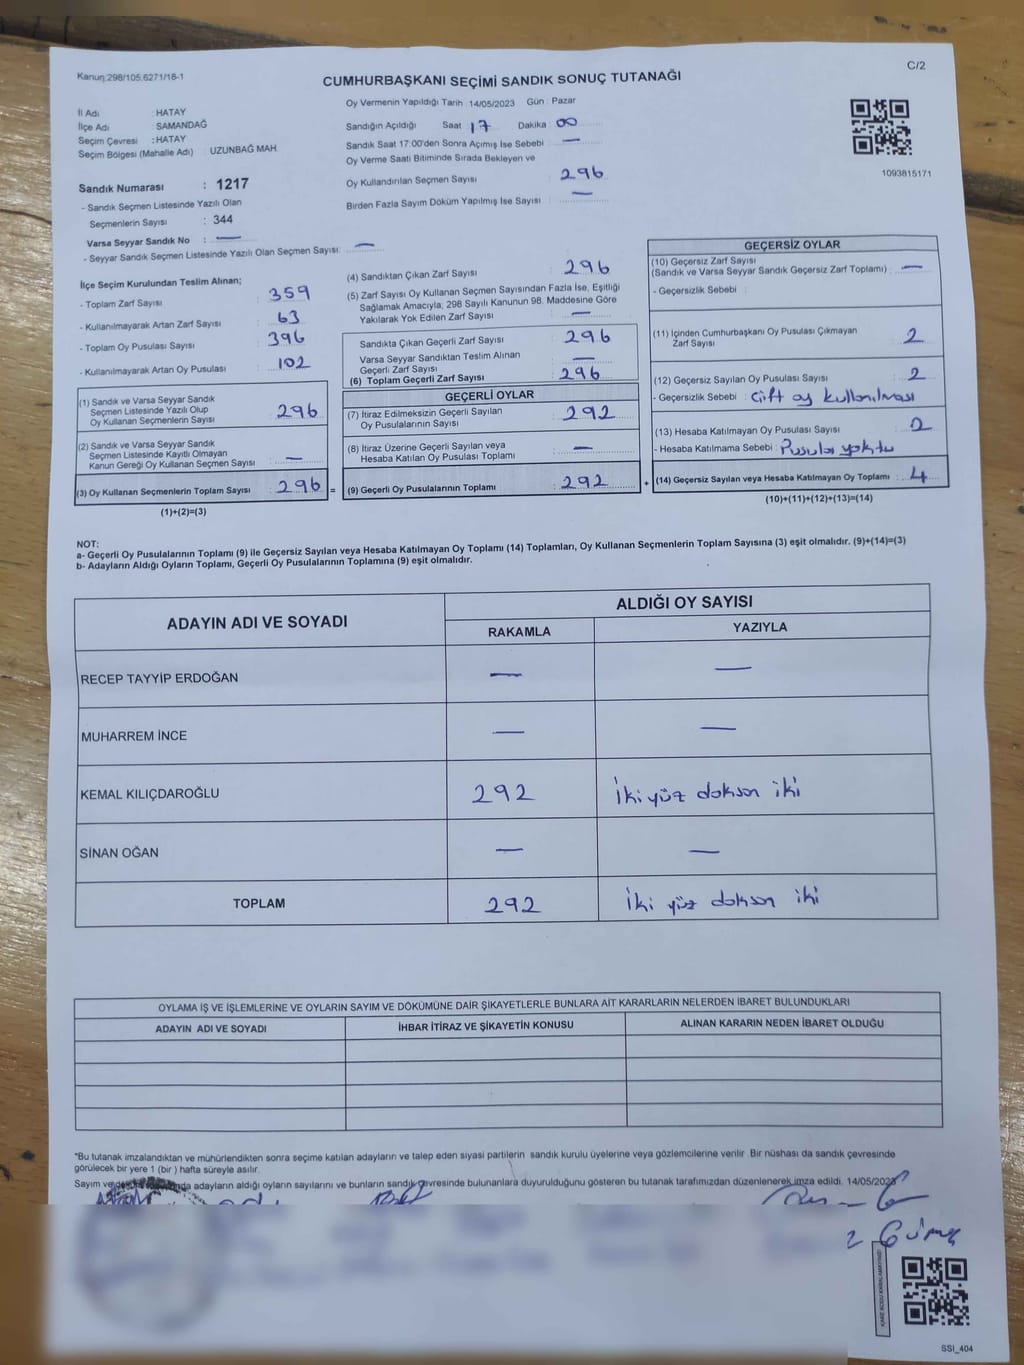 Kanun:298/105.6271/18-1
CUMHURBAŞKANI SEÇİMİ SANDIK SONUÇ TUTANAĞI
C/2
İl Adı : HATAY
İlçe Adı : SAMANDAĞ
Seçim Çevresi : HATAY
Seçim Bölgesi (Mahalle Adı) : UZUNBAĞ MAH.
Oy Vermenin Yapıldığı Tarih 14/05/2023 Gün : Pazar
Sandığın Açıldığı Saat 17 Dakika 00
Sandık Saat 17:00'den Sonra Açımış İse Sebebi : —
Oy Verme Saati Bitiminde Sırada Bekleyen ve
Oy Kullandırılan Seçmen Sayısı : 296
Birden Fazla Sayım Döküm Yapılmış İse Sayısı : —
1093815171
Sandık Numarası : 1217
- Sandık Seçmen Listesinde Yazılı Olan
Seçmenlerin Sayısı : 344
Varsa Seyyar Sandık No : —
- Seyyar Sandık Seçmen Listesinde Yazılı Olan Seçmen Sayısı: —
İlçe Seçim Kurulundan Teslim Alınan;
- Toplam Zarf Sayısı : 359
- Kullanılmayarak Artan Zarf Sayısı : 63
- Toplam Oy Pusulası Sayısı : 396
- Kullanılmayarak Artan Oy Pusulası : 102
(1) Sandık ve Varsa Seyyar Sandık
Seçmen Listesinde Yazılı Olup
Oy Kullanan Seçmenlerin Sayısı : 296
(2) Sandık ve Varsa Seyyar Sandık
Seçmen Listesinde Kayıtlı Olmayan
Kanun Gereği Oy Kullanan Seçmen Sayısı : —
(3) Oy Kullanan Seçmenlerin Toplam Sayısı : 296 =
(1)+(2)=(3)
(4) Sandıktan Çıkan Zarf Sayısı : 296
(5) Zarf Sayısı Oy Kullanan Seçmen Sayısından Fazla İse, Eşitliği
Sağlamak Amacıyla; 298 Sayılı Kanunun 98. Maddesine Göre
Yakılarak Yok Edilen Zarf Sayısı : —
Sandıkta Çıkan Geçerli Zarf Sayısı : 296
Varsa Seyyar Sandıktan Teslim Alınan
Geçerli Zarf Sayısı : —
(6) Toplam Geçerli Zarf Sayısı : 296
GEÇERLİ OYLAR
(7) İtiraz Edilmeksizin Geçerli Sayılan
Oy Pusulalarının Sayısı : 292
(8) İtiraz Üzerine Geçerli Sayılan veya
Hesaba Katılan Oy Pusulası Toplamı : —
(9) Geçerli Oy Pusulalarının Toplamı : 292 +
GEÇERSİZ OYLAR
(10) Geçersiz Zarf Sayısı
(Sandık ve Varsa Seyyar Sandık Geçersiz Zarf Toplamı) : —
- Geçersizlik Sebebi :
(11) İçinden Cumhurbaşkanı Oy Pusulası Çıkmayan
Zarf Sayısı : 2
(12) Geçersiz Sayılan Oy Pusulası Sayısı : 2
- Geçersizlik Sebebi : Çift oy kullanılması
(13) Hesaba Katılmayan Oy Pusulası Sayısı : 2
- Hesaba Katılmama Sebebi : Pusula yoktu
(14) Geçersiz Sayılan veya Hesaba Katılmayan Oy Toplamı : 4
(10)+(11)+(12)+(13)=(14)
NOT:
a- Geçerli Oy Pusulalarının Toplamı (9) ile Geçersiz Sayılan veya Hesaba Katılmayan Oy Toplamı (14) Toplamları, Oy Kullanan Seçmenlerin Toplam Sayısına (3) eşit olmalıdır. (9)+(14)=(3)
b- Adayların Aldığı Oyların Toplamı, Geçerli Oy Pusulalarının Toplamına (9) eşit olmalıdır.
ADAYIN ADI VE SOYADI
ALDIĞI OY SAYISI
RAKAMLA YAZIYLA
RECEP TAYYİP ERDOĞAN — —
MUHARREM İNCE — —
KEMAL KILIÇDAROĞLU 292 İki yüz doksan iki
SİNAN OĞAN — —
TOPLAM 292 İki yüz doksan iki
OYLAMA İŞ VE İŞLEMLERİNE VE OYLARIN SAYIM VE DÖKÜMÜNE DAİR ŞİKAYETLERLE BUNLARA AİT KARARLARIN NELERDEN İBARET BULUNDUKLARI
ADAYIN ADI VE SOYADI İHBAR İTİRAZ VE ŞİKAYETİN KONUSU ALINAN KARARIN NEDEN İBARET OLDUĞU
*Bu tutanak imzalandıktan ve mühürlendikten sonra seçime katılan adayların ve talep eden siyasi partilerin sandık kurulu üyelerine veya gözlemcilerine verilir. Bir nüshası da sandık çevresinde
görülecek bir yere 1 (bir ) hafta süreyle asılır.
Sayım ve adayların aldığı oyların sayılarını ve bunların sandık çevresinde bulunanlara duyurulduğunu gösteren bu tutanak tarafımızdan düzenlenerek imza edildi. 14/05/2023
SSI_404